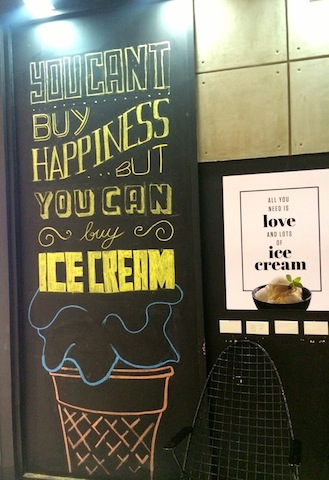 YOU CANT
BUY
HAPPINESS
...BUT
YOU CAN
buy
ICE CREAM
ALL YOU
NEED IS
love
AND LOTS
OF
ice
cream